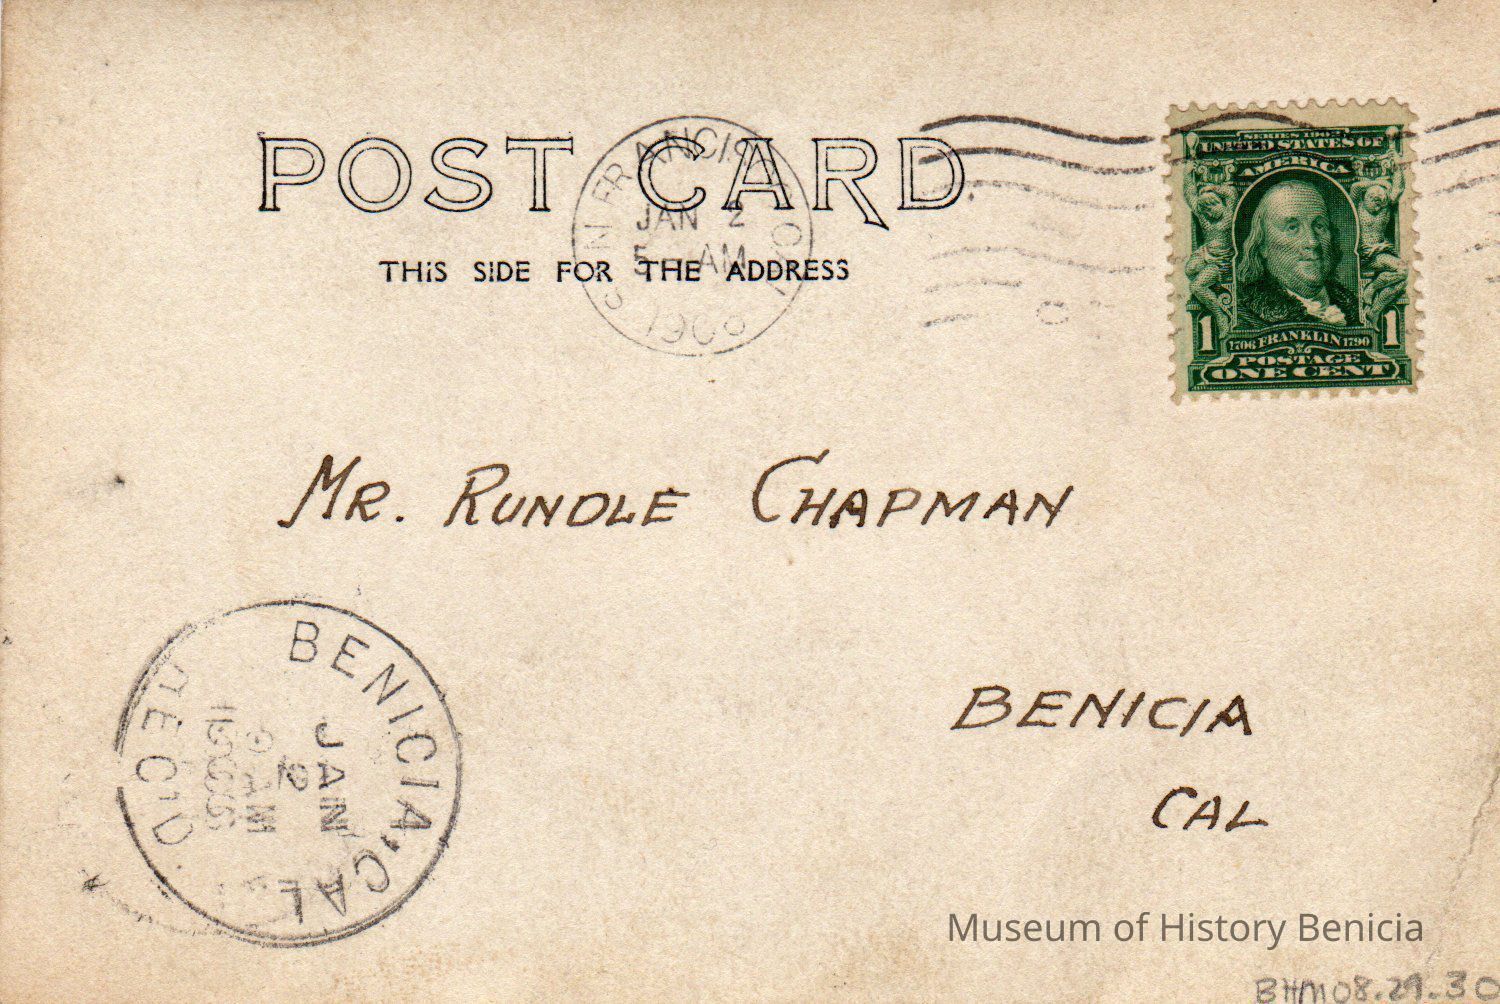 POST CARD
THIS SIDE FOR THE ADDRESS
SAN FRANCISCO, CAL
JAN 2
5 AM
SERIES 1902
UNITED STATES OF
AMERICA
1 1706 FRANKLIN 1790 1
POSTAGE
ONE CENT
MR. RUNDLE CHAPMAN
BENICIA
CAL
BENICIA, CAL.
REC'D.
JAN
2
AM
Museum of History Benicia
BHM08.29.30